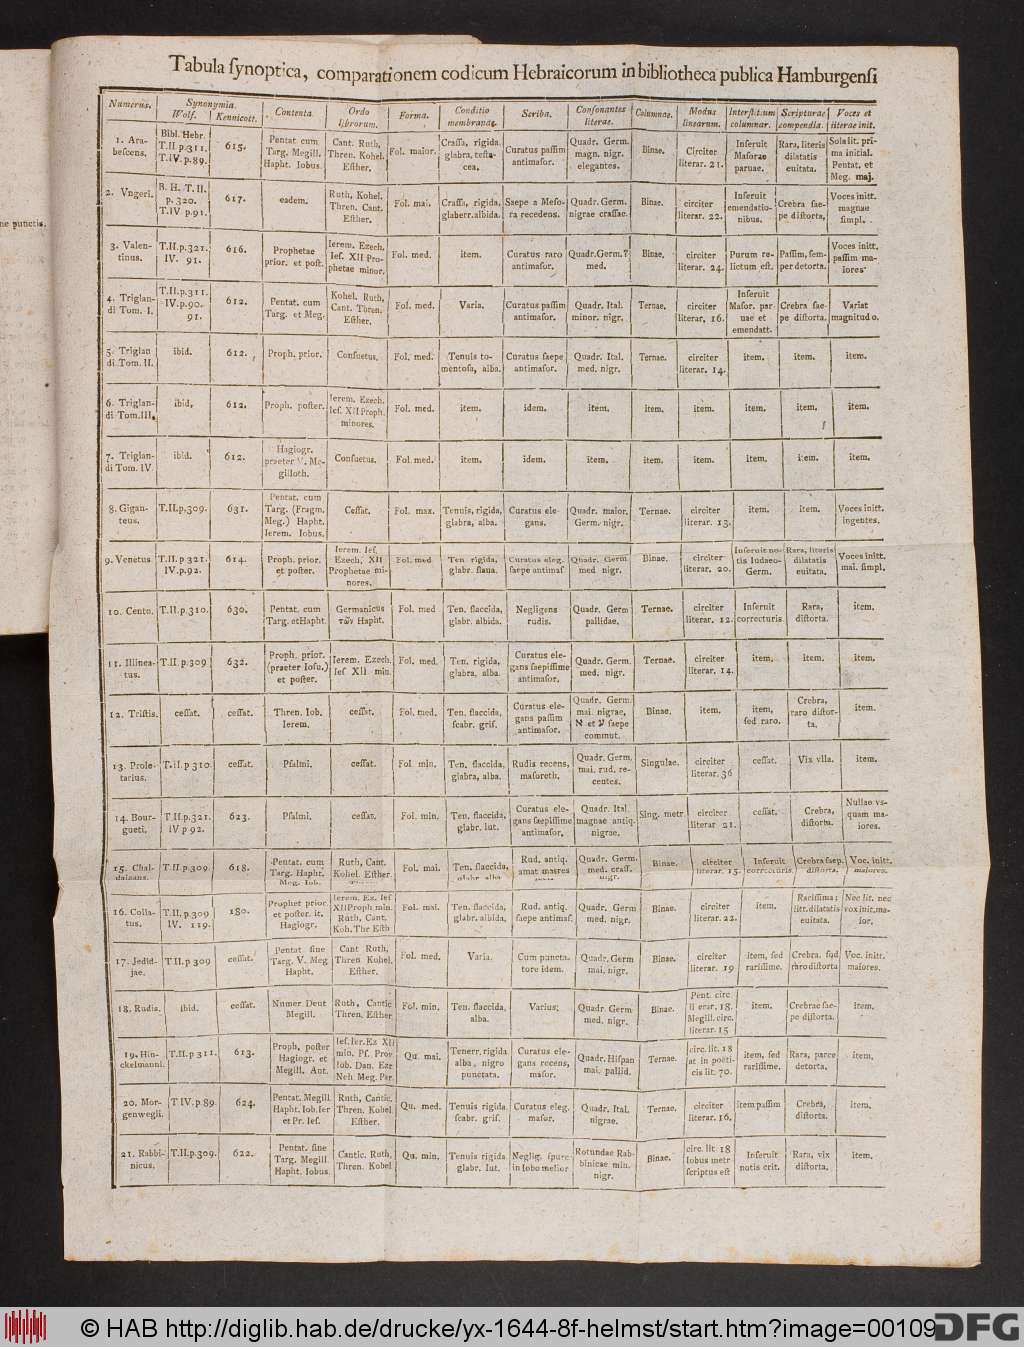 Tabula ſynoptica, comparationem codicum Hebraicorum in bibliotheca publica Hamburgenſi
ne punctis.
Numerus. | Synonymia. Wolf. | Kennicott. | Contenta. | Ordo librorum. | Forma. | Conditio membranae. | Scriba. | Conſonantes literae. | Columnae. | Modus linearum. | Interſtitium columnar. | Scripturae compendia. | Voces et literae init.
1. Arabeſcens. | Bibl. Hebr. T.II p.311. T.IV. p.89. | 615. | Pentat cum Targ. Megill. Hapht. Iobus. | Cant. Ruth, Thren. Kohel. Eſther. | Fol. maior. | Craſſa, rigida, glabra, teſtacea. | Curatus paſſim antimaſor. | Quadr. Germ. magn. nigr. elegantes. | Binae. | Circiter literar. 21. | Inſeruit Maſorae paruae. | Rara, literis dilatatis euitata. | Sola lit. prima initial. Pentat. et Meg. maj.
2. Vngeri. | B. H. T. II. p. 320. T.IV p.91. | 617. | eadem. | Ruth, Kohel. Thren. Cant. Eſther. | Fol. mai. | Craſſa, rigida, glaberr.albida. | Saepe a Meſora recedens. | Quadr. Germ. nigrae craſſae. | Binae. | circiter literar. 22. | Inſeruit emendationibus. | Crebra ſaepe diſtorta. | Voces initt. magnae ſimpl.
3. Valentinus. | T.II.p.321. IV. 91. | 616. | Prophetae prior. et poſt. | Ierem. Ezech. Ieſ. XII Prophetae minor. | Fol. med. | item. | Curatus raro antimaſor. | Quadr.Germ. med. | Binae. | circiter literar. 24. | Purum relictum eſt. | Paſſim, ſemper detorta. | Voces initt. paſſim maiores.
4. Triglandi Tom. I. | T.II.p.311. IV.p.90. 91. | 612. | Pentat. cum Targ. et Meg. | Kohel. Ruth, Cant. Thren. Eſther. | Fol. med. | Varia. | Curatus paſſim antimaſor. | Quadr. Ital. minor. nigr. | Ternae. | circiter literar. 16. | Inſeruit Maſor. paruae et emendatt. | Crebra ſaepe diſtorta. | Variat magnitudo.
5. Triglandi Tom. II. | ibid. | 612. | Proph. prior. | Conſuetus. | Fol. med. | Tenuis tomentoſa, alba. | Curatus ſaepe antimaſor. | Quadr. Ital. med. nigr. | Ternae. | circiter literar. 14. | item. | item. | item.
6. Triglandi Tom.III. | ibid. | 612. | Proph. poſter. | Ierem. Ezech. Ieſ. XII Proph. minores. | Fol. med. | item. | idem. | item. | item. | item. | item. | item. | item.
7. Triglandi Tom. IV. | ibid. | 612. | Hagiogr. praeter V. Megilloth. | Conſuetus. | Fol. med. | item. | idem. | item. | item. | item. | item. | item. | item.
8. Giganteus. | T.II.p.309. | 631. | Pentat. cum Targ. (Fragm. Meg.) Hapht. Ierem. Iobus. | Ceſſat. | Fol. max. | Tenuis, rigida, glabra, alba. | Curatus elegans. | Quadr. maior. Germ. nigr. | Ternae. | circiter literar. 13. | item. | item. | Voces initt. ingentes.
9. Venetus | T.II.p.321. IV.p.92. | 614. | Proph. prior. et poſter. | Ierem. Ieſ. Ezech. XII Prophetae minores. | Fol. med | Ten. rigida, glabr. flaua. | Curatus eleg. ſaepe antimaſ | Quadr. Germ med. nigr. | Binae. | circiter literar. 20. | Inſeruit notis Iudaeo-Germ. | Rara, literis dilatatis euitata. | Voces initt. mai. ſimpl.
10. Cento. | T.II.p.310. | 630. | Pentat. cum Targ. et Hapht. | Germanicus τῶν Hapht. | Fol. med | Ten. flaccida, glabr. albida. | Negligens rudis. | Quadr. Germ pallidae. | Ternae. | circiter literar. 12. | Inſeruit correcturis. | Rara, diſtorta. | item.
11. Illineatus. | T.II.p.309 | 632. | Proph. prior. (praeter Ioſu.) et poſter. | Ierem. Ezech. Ieſ XII min. | Fol. med. | Ten. rigida, glabra, alba. | Curatus elegans ſaepiſſime antimaſor. | Quadr. Germ. med. nigr. | Ternae. | circiter literar. 14. | item. | item. | item.
12. Triſtis. | ceſſat. | ceſſat. | Thren. Iob. Ierem. | ceſſat. | Fol. med. | Ten. flaccida, ſcabr. griſ. | Curatus elegans paſſim antimaſor. | Quadr. Germ. mai. nigrae, א et ע ſaepe commut. | Binae. | item. | item, ſed raro. | Crebra, raro diſtorta. | item.
13. Proletarius. | T.II.p 310. | ceſſat. | Pſalmi. | ceſſat. | Fol. min. | Ten. flaccida, glabra, alba. | Rudis recens, maſoreth. | Quadr. Germ. mai. rud. recentes. | Singulae. | circiter literar. 36 | ceſſat. | Vix vlla. | item.
14. Bourgueti. | T.II.p.321. IV p 92. | 623. | Pſalmi. | ceſſat. | Fol. min. | Ten. flaccida, glabr. lut. | Curatus elegans ſaepiſſime antimaſor. | Quadr. Ital. magnae antiq. nigrae. | Sing. metr | circiter literar 21. | ceſſat. | Crebra, diſtorta. | Nullae vsquam maiores.
15. Chaldaizans. | T.II.p.309. | 618. | Pentat. cum Targ. Hapht. Meg. Iob. | Ruth, Cant. Kohel. Eſther. | Fol. mai. | Ten. flaccida, glabr. alba | Rud. antiq. amat maeres | Quadr. Germ. med. craſſ. nigr. | Binae. | circiter literar. 15. | Inſeruit correcturis. | Crebra ſaep. diſtorta. | Voc. initt. maiores.
16. Collatus. | T.II, p.309 IV. 119. | 180. | Prophet prior. et poſter. it. Hagiogr. | Ierem. Ez. Ieſ XII Proph min. Ruth, Cant. Koh. Thr Eſth | Fol. mai. | Ten. flaccida, glabr. albida. | Rud. antiq. ſaepe antimaſ. | Quadr. Germ med. nigr. | Binae. | circiter literar. 22. | item. | Rariſſima; litt. dilatatis euitata. | Nec lit. nec vox init. maior.
17. Jedidjae. | T.II.p 309 | ceſſat. | Pentat ſine Targ. V. Meg Hapht. | Cant Ruth, Thren Kohel. Eſther. | Fol. med. | Varia. | Cum punctatore idem. | Quadr. Germ mai. nigr. | Binae. | circiter literar. 19 | item, ſed rariſſime. | Crebra. ſed raro diſtorta | Voc. initt. maiores.
18. Rudis. | ibid. | ceſſat. | Numer Deut Megill. | Ruth, Cantic Thren. Eſther | Fol. min. | Ten. flaccida, alba. | Varius. | Quadr Germ med. nigr. | Binae. | Pent. circ. literar. 18. Megill. circ. literar. 15. | item. | Crebrae ſaepe diſtorta. | item.
19. Hinckelmanni. | T.II.p 311. | 613. | Proph, poſter Hagiogr. et Megill. Ant. | Ieſ. Ier. Ez XII min. Pſ. Prov Iob. Dan. Ezr Neh Meg. Par. | Qu. mai. | Tenerr. rigida alba, nigro punctata. | Curatus elegans recens, maſor. | Quadr. Hiſpan mai. pallid. | Ternae. | circ. lit. 18 at in poëticis lit. 70. | item, ſed rariſſime. | Rara, parce detorta. | item.
20. Morgenwegii. | T IV.p 89. | 624. | Pentat. Megill Hapht. Iob. Ier et Pr. Ieſ. | Ruth, Cantic. Thren. Kohel Eſther. | Qu. med. | Tenuis rigida ſcabr. griſ. | Curatus eleg. maſor. | Quadr. Ital. nigrae. | Ternae. | circiter literar. 16. | item paſſim | Crebra, diſtorta. | item.
21. Rabbinicus. | T.II.p.309. | 622. | Pentat. ſine Targ. Megill Hapht. Iobus. | Cantic. Ruth, Thren. Kohel | Qu. min. | Tenuis rigida glabr. lut. | Neglig. ſpurc in Iobo melior | Rotundae Rabbinicae min. nigr. | Binae. | circ. lit 18 Iobus metr ſcriptus eſt | Inſeruit notis crit. | Rara, vix diſtorta. | item.
© HAB http://diglib.hab.de/drucke/yx-1644-8f-helmst/start.htm?image=00109
DFG